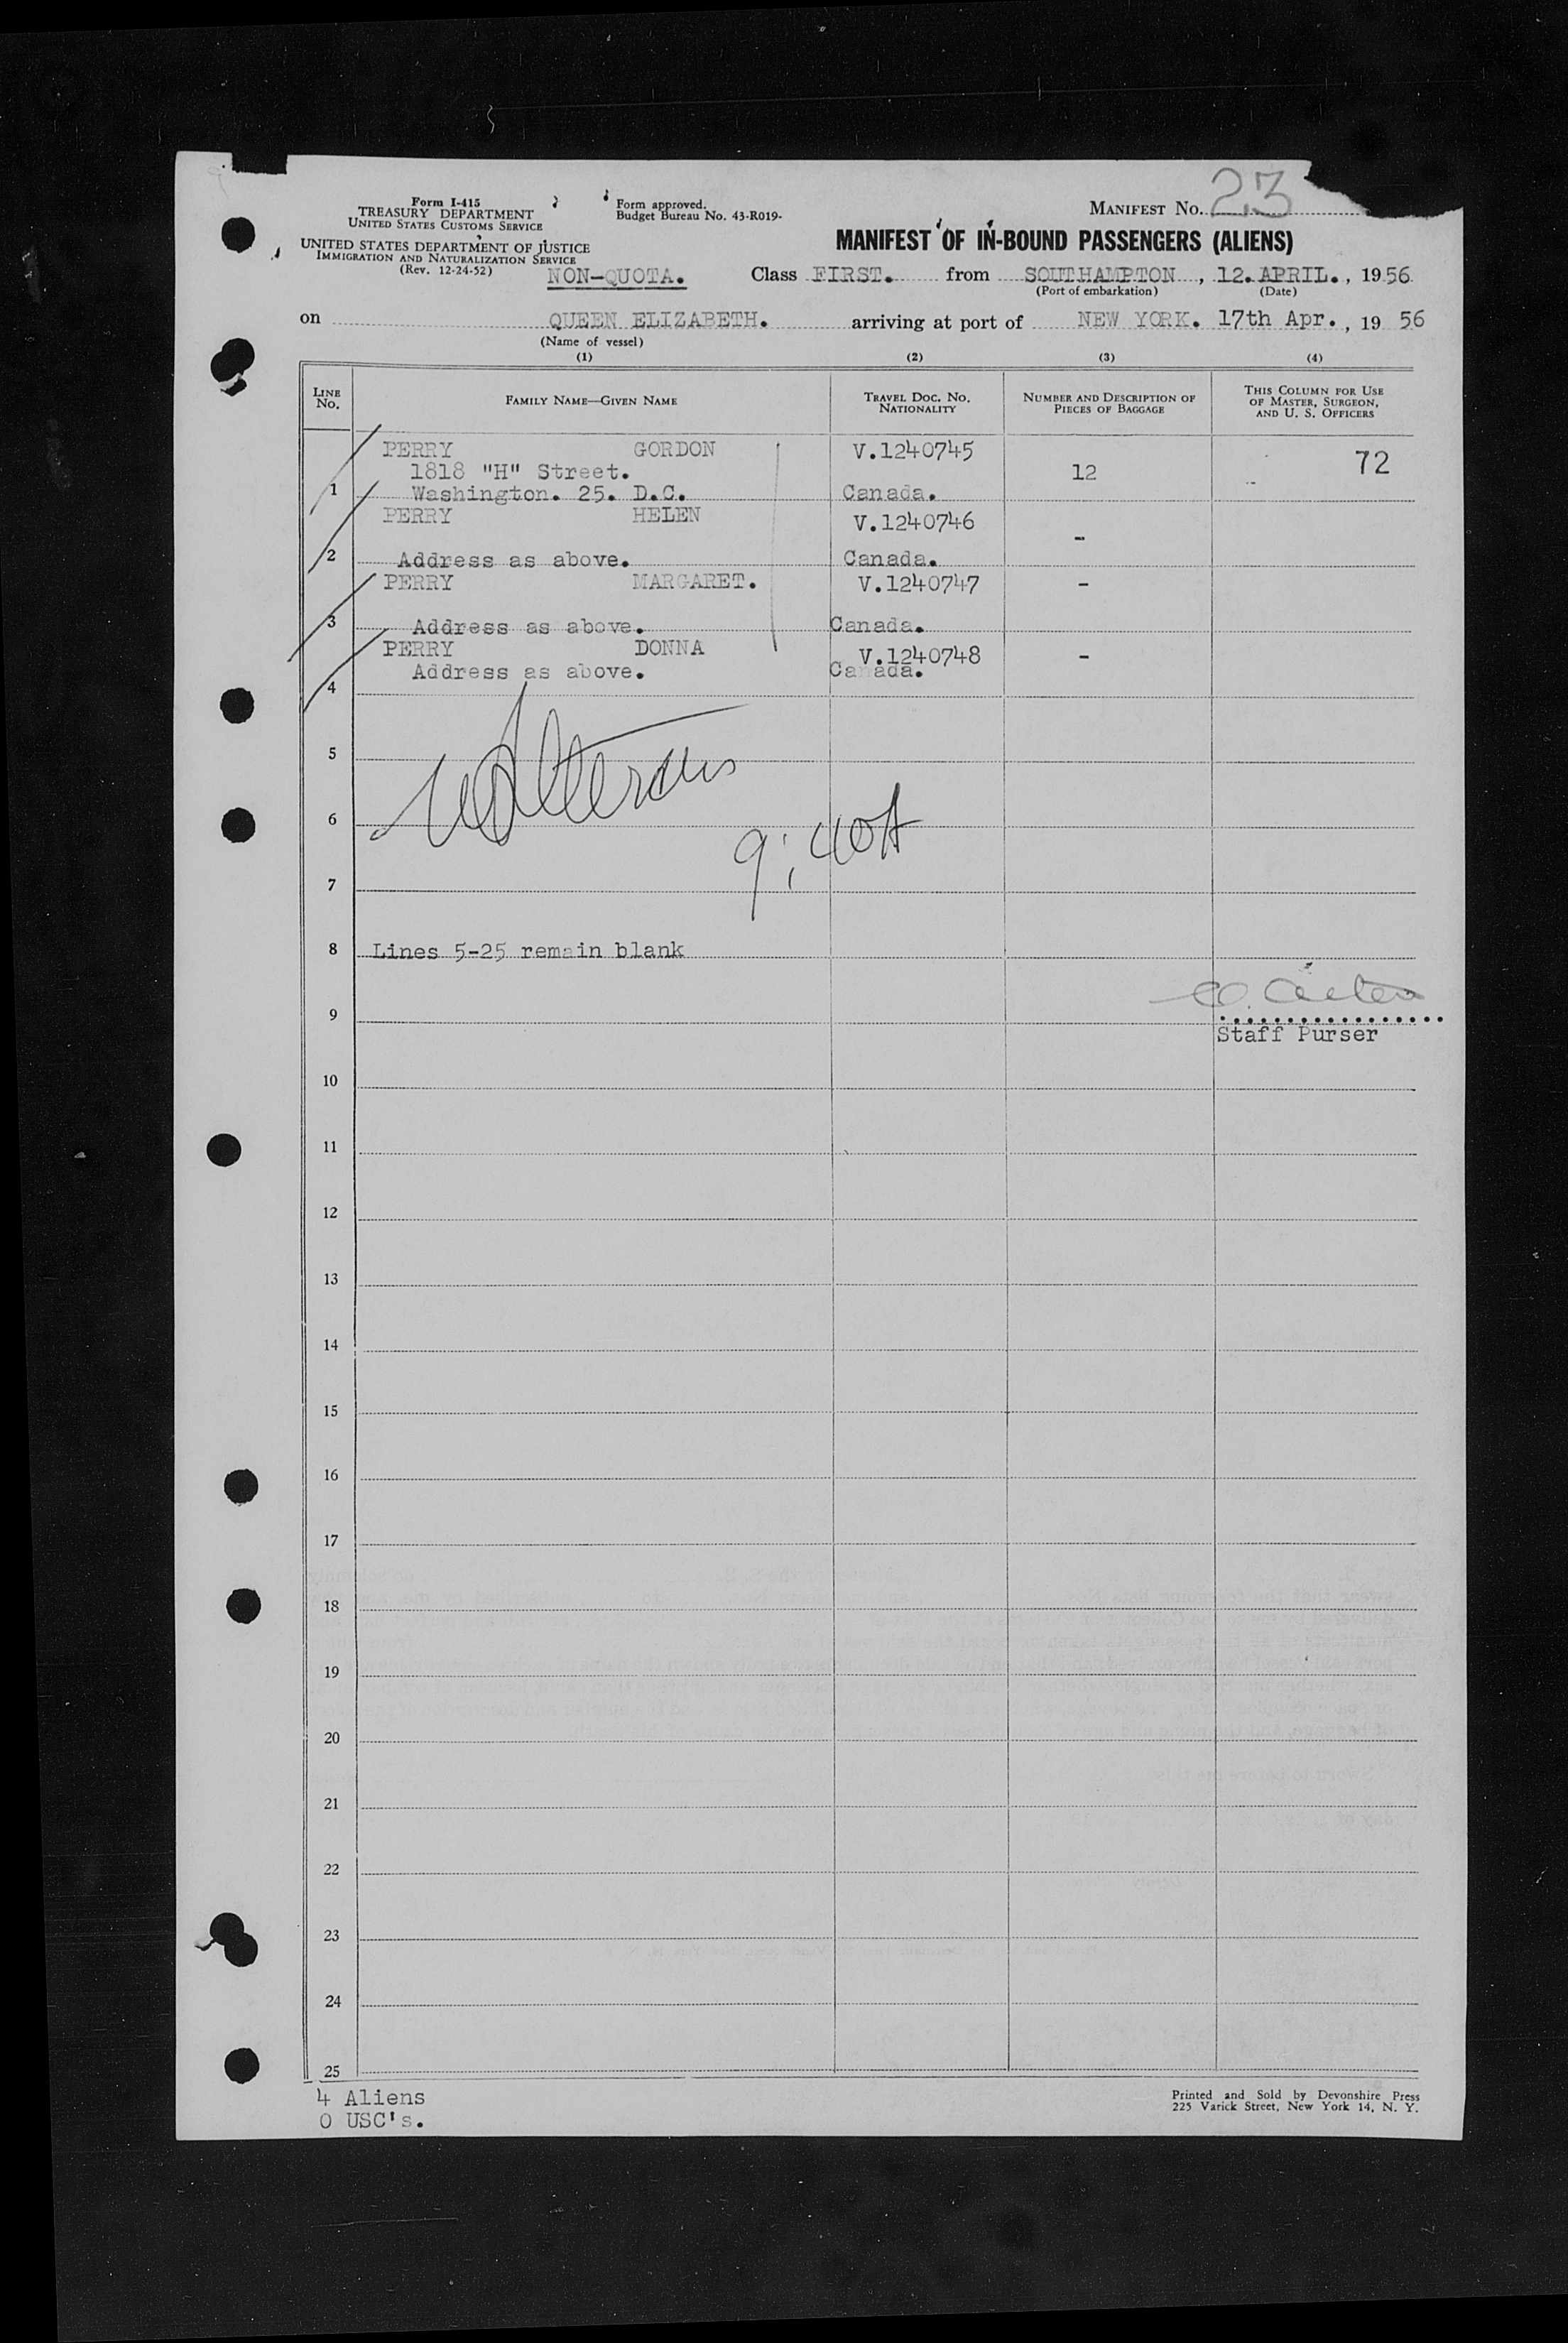 Form I-415
TREASURY DEPARTMENT
UNITED STATES CUSTOMS SERVICE
UNITED STATES DEPARTMENT OF JUSTICE
IMMIGRATION AND NATURALIZATION SERVICE
(Rev. 12-24-52)
Form approved.
Budget Bureau No. 43-R019-
MANIFEST No. 23
MANIFEST OF IN-BOUND PASSENGERS (ALIENS)
NON-QUOTA. Class FIRST. from SOUTHAMPTON, 12. APRIL., 1956
(Port of embarkation) (Date)
on QUEEN ELIZABETH. arriving at port of NEW YORK. 17th Apr., 19 56
(Name of vessel)
(1) (2) (3) (4)
LINE No. FAMILY NAME—GIVEN NAME TRAVEL DOC. No. NATIONALITY NUMBER AND DESCRIPTION OF PIECES OF BAGGAGE THIS COLUMN FOR USE OF MASTER, SURGEON, AND U. S. OFFICERS
PERRY GORDON V.1240745
1818 "H" Street. 12 72
1 Washington. 25. D.C. Canada.
PERRY HELEN V.1240746
-
2 Address as above. Canada.
PERRY MARGARET. V.1240747 -
3 Address as above. Canada.
PERRY DONNA V.1240748 -
Address as above. Canada.
4
5
6
9:40A
7
8 Lines 5-25 remain blank
9
Staff Purser
10
11
12
13
14
15
16
17
18
19
20
21
22
23
24
25
4 Aliens
0 USC's.
Printed and Sold by Devonshire Press
225 Varick Street, New York 14, N. Y.